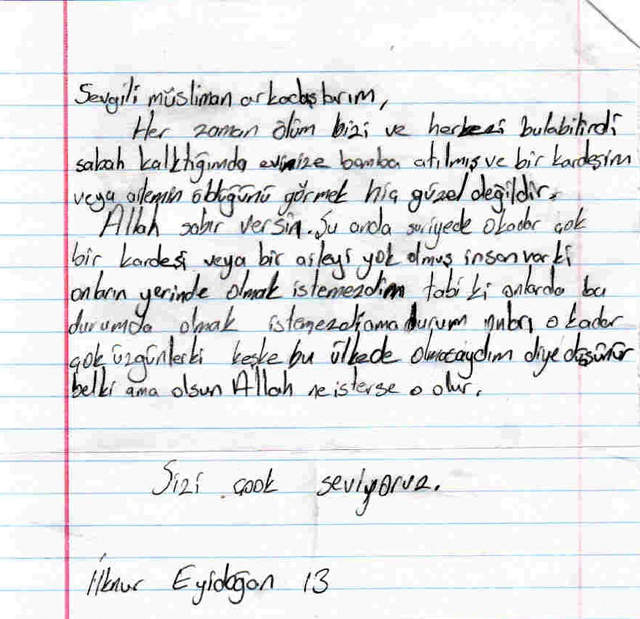 Sevgili müsliman arkadaşlarım,
Her zaman ölüm bizi ve herkesi bulabilirdi
sabah kalktığımda evinize bomba atılmış ve bir kardeşim
veya ailemin öldüğünü görmek hiç güzel değildir.
Allah sabır versin. Şu anda suriyede okadar çok
bir kardeşi veya bir aileyi yok olmuş insan var ki
onların yerinde olmak istemezdim tabi ki onlarda bu
durumda olmak istemezdi ama durum o kadar
çok üzgünlerki keşke bu ülkede olmasaydım diye düşünür
belki ama olsun Allah ne isterse o olur.
Sizi çook seviyoruz.
İlknur Eyidoğan 13